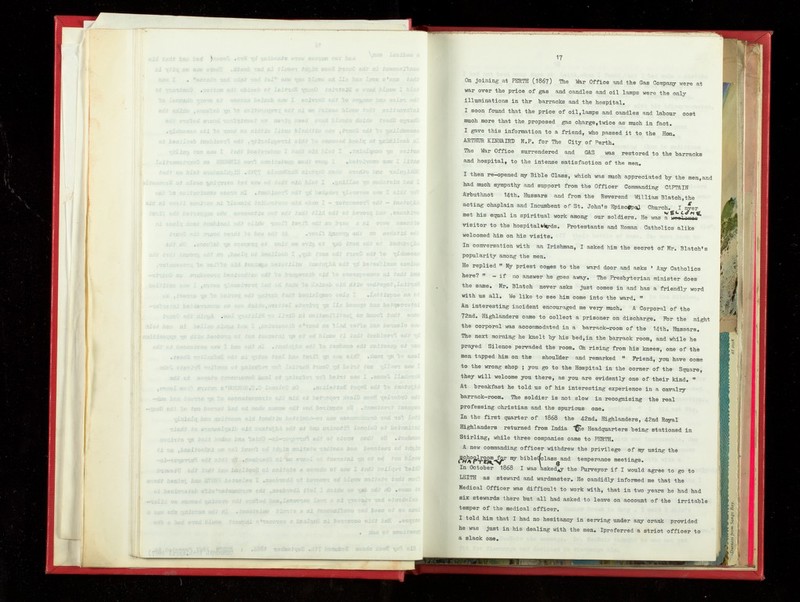 17
On joining at PERTH (1867) The War Office and the Gas Company were at
war over the price of gas and candles and oil lamps were the only
illuminations in thr barracks and the hospital.
I soon found that the price of oil,lamps and candles and labour cost
much more that the proposed gas charge,twice as much in fact.
I gave this information to a friend, who passed it to the Hon.
ARTHUR KINNAIRD M.P. for The City of Perth.
The War Office surrendered and GAS was restored to the barracks
and hospital, to the intense satisfaction of the men.
I then re-opened my Bible Class, which was much appreciated by the men,and
had much sympathy and support from the Officer Commanding CAPTAIN
Arbuthnot 14th. Hussars and from the Reverend William Blatch,the
acting chaplain and Incumbent of St. John's Episcopal Church. I never
met his equal in spiritual work among our soldiers. He was a WELCOME
visitor to the hospital wards. Protestants and Roman Catholics alike
welcomed him on his visits.
In conversation with an Irishman, I asked him the secret of Mr. Blatch's
popularity among the men.
He replied " My priest comes to the ward door and asks ' Any Catholics
here? " - if no answer he goes away. The Presbyterian minister does
the same. Mr. Blatch never asks just comes in and has a friendly word
with us all. We like to see him come into the ward. "
An interesting incident encouraged me very much. A Corporal of the
72nd. Highlanders came to collect a prisoner on discharge. For the night
the corporal was accommodated in a barrack-room of the 14th. Hussars.
The next morning he knelt by his bed,in the barrack room, and while he
prayed Silence pervaded the room. On rising from his knees, one of the
men tapped him on the shoulder and remarked " Friend, you have come
to the wrong shop ; you go to the Hospital in the corner of the Square,
they will welcome you there, as you are evidently one of their kind. "
At breakfast he told us of his interesting experience in a cavalry
barrack-room. The soldier is not slow in recognising the real
professing christian and the spurious one.
In the first quarter of 1868 the 42nd. Highlanders, 42nd Royal
Highlanders returned from India The Headquarters being stationed in
Stirling, while three companies came to PERTH.
A new commanding officer withdrew the privilege of my using the
schoolroom for my bible class and temperance meetings.
CHAPTER V
In October 1868 I was asked by the Purveyor if I would agree to go to
LEITH as steward and wardmaster. He candidly informed me that the
Medical Officer was difficult to work with, that in two years he had had
six stewards there but all had asked to leave on account of the irritable
temper of the medical officer.
I told him that I had no hesitancy in serving under any crank provided
he was just in his dealing with the men. Ipreferred a strict officer to
a slack one.